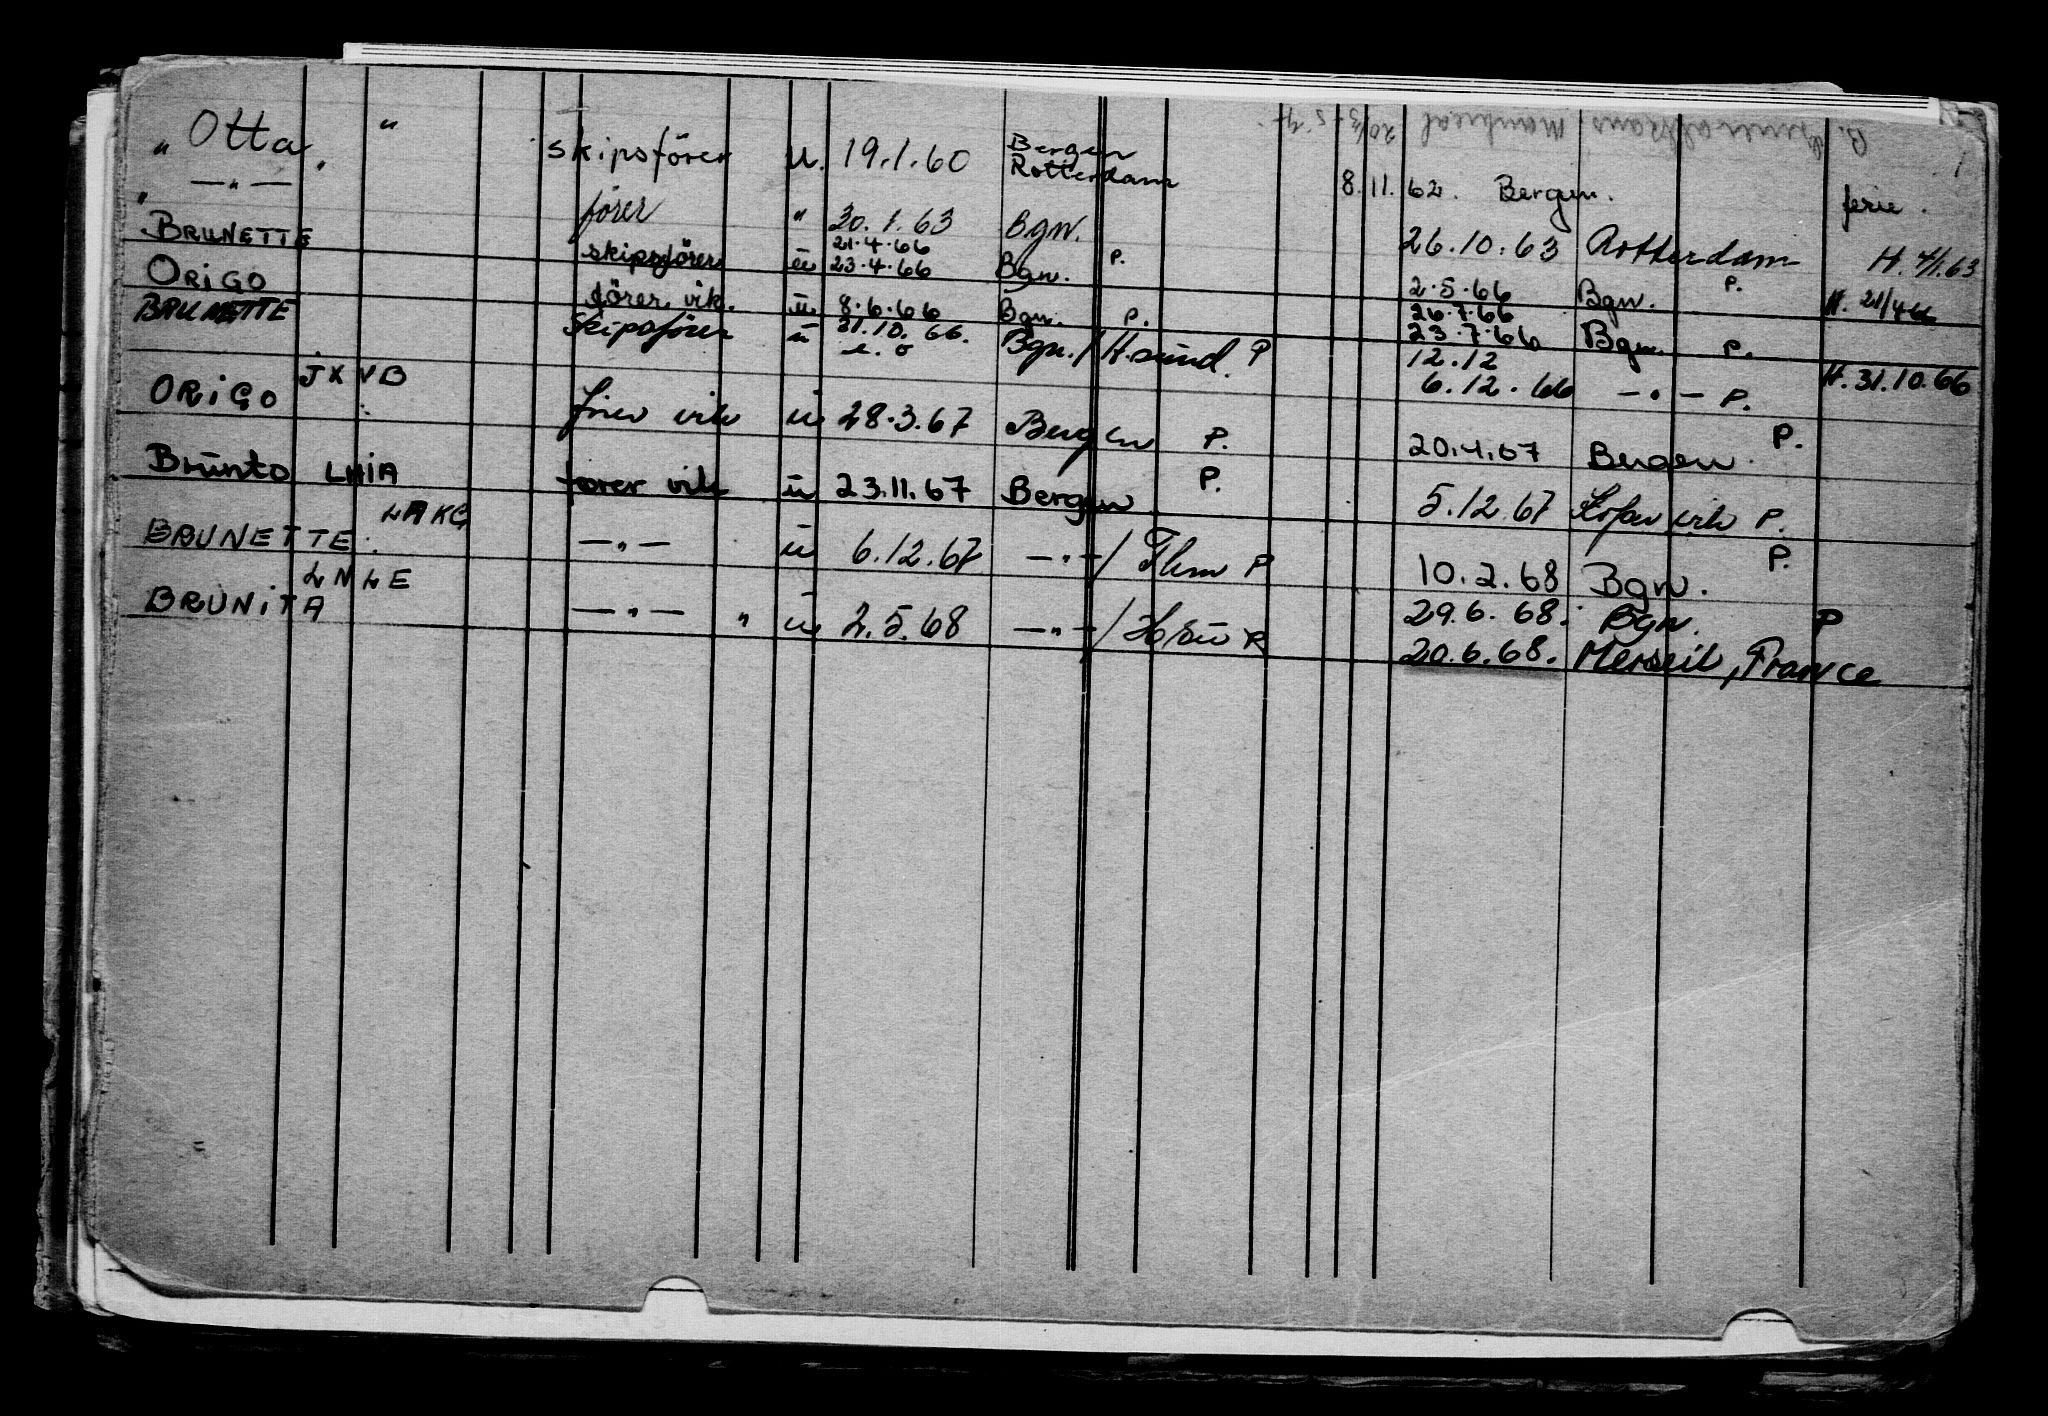 " Otta " skipsförer u. 19.1.60 Bergen Rotterdam 8. 11. 62. Bergen. ferie.
" —"— förer " 30.1.63 Bgn. 26.10.63 Rotterdam H. 4/1.63
BRUNETTE skipsförer u 21.4.66 23.4.66 Bgn. P. 2.5.66 Bgn. P. H. 21/4 66
ORIGO förer vik. u 8.6.66 Bgn. P. 26.7.66 23.7.66 Bgn. P.
BRUNETTE Skipsförer u 31.10.66. Bgn./H.sund. P 12.12 6.12.66 —"— P. H. 31.10.66
ORIGO JXVB förer vik u 28.3.67 Bergen P. 20.4.67 Bergen P.
Brunto LHIA förer vik u 23.11.67 Bergen P. 5.12.67 P.
BRUNETTE LAKG —"— u 6.12.67 —"—/ P 10.2.68 Bgn. P.
BRUNITA LNLE —"— " u 2.5.68 —"—/ 29.6.68. Bgn. P
20.6.68. Merseil, France